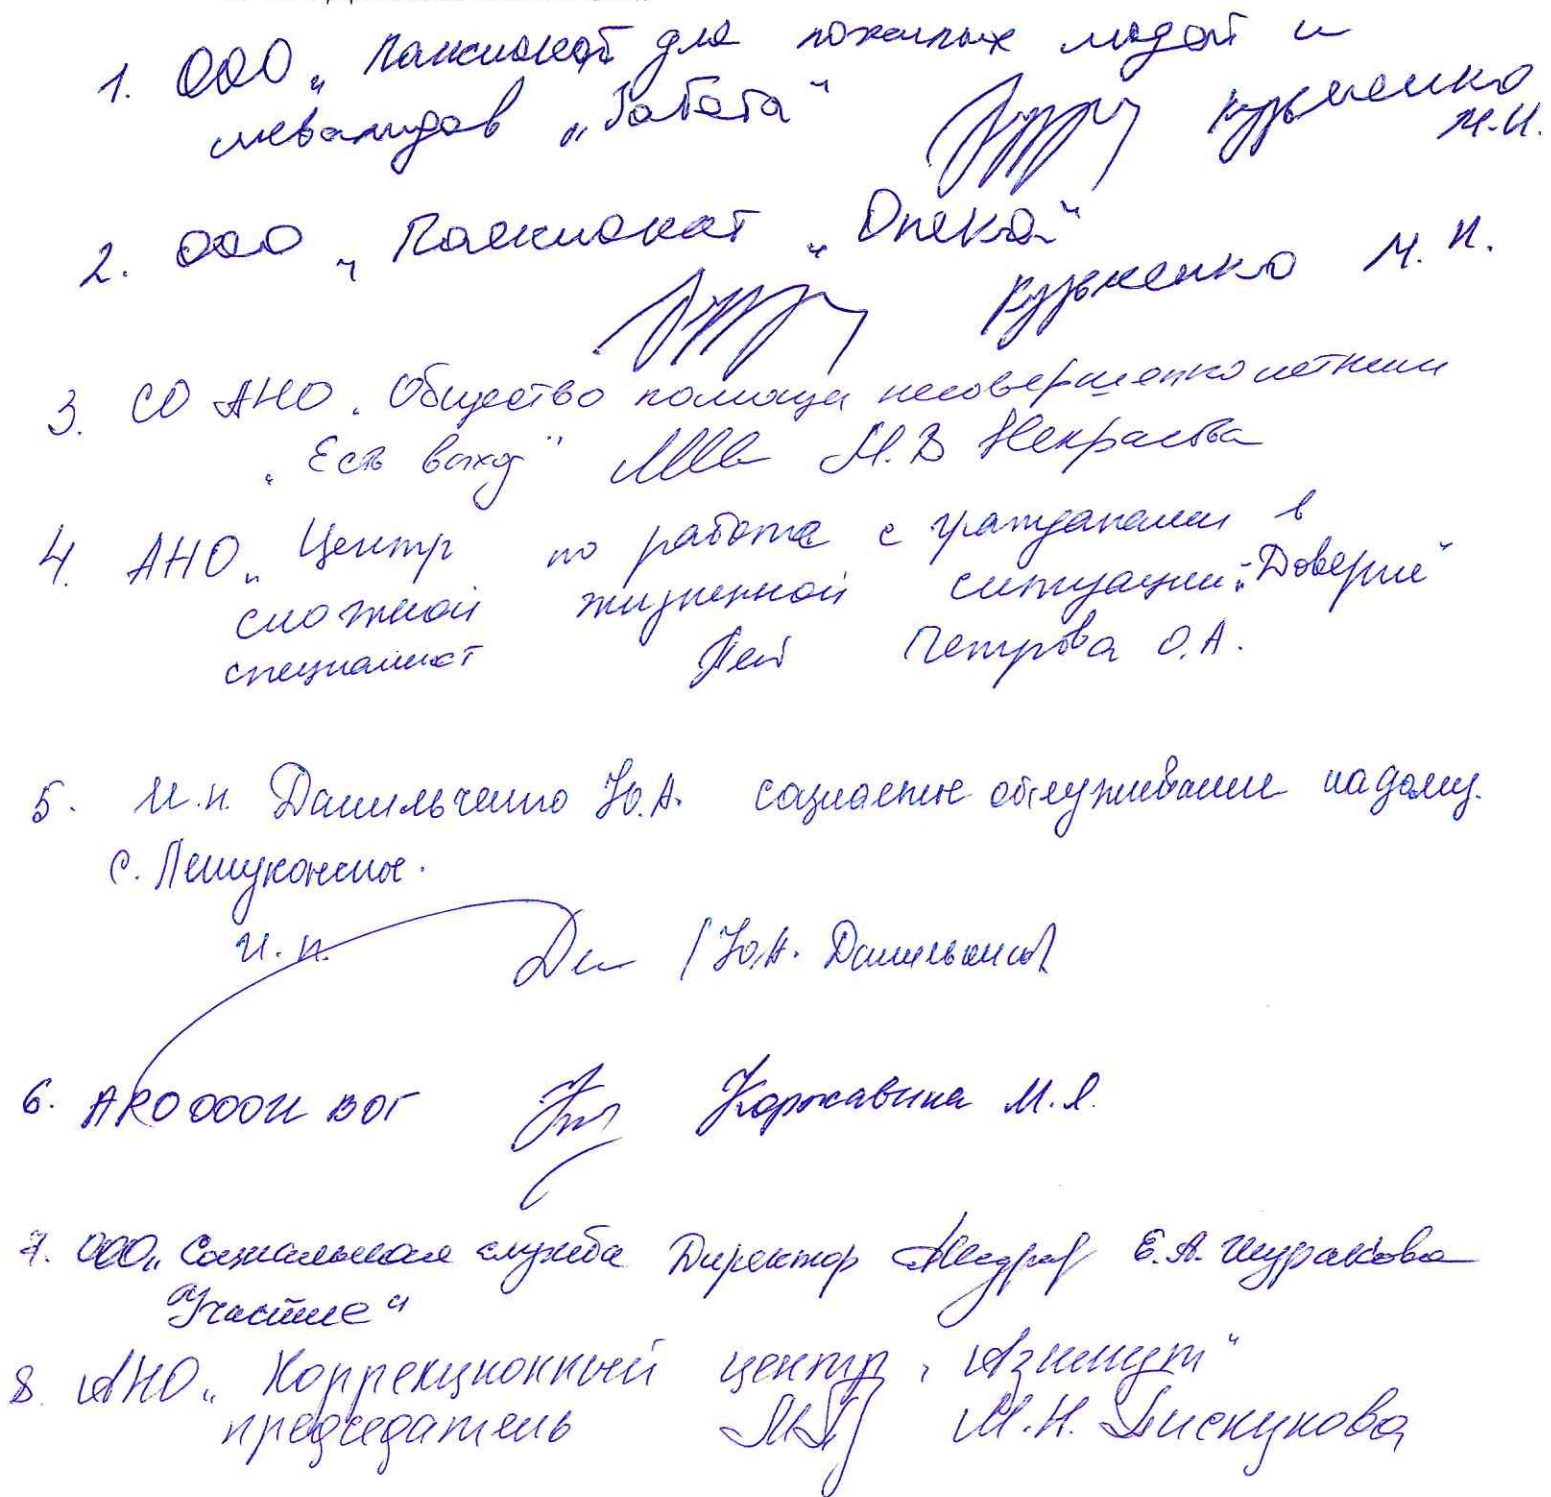 1. ООО „Пансионат для пожилых людей и
инвалидов „Забота" Кузьменко
М.И.
2. ООО „Пансионат „Опека"
Кузьменко М.И.
3. СО АНО „Общество помощи несовершеннолетним
„Есть выход" М.В Некрасова
4. АНО „Центр по работе с гражданами в
сложной жизненной ситуации „Доверие"
специалист Петрова О.А.
5. И.п. Данильченко Ю.А. социальное обслуживание на дому.
с. Лешуконское.
И.п. (Ю.А. Данильченко)
6. АРО ОООИ ВОГ Коржавина М.Я.
7. ООО „Социальная служба Директор Е.А. Шуракова
"Участие"
8. АНО „Коррекционный центр „Азимут"
председатель М.Н. Пискунова